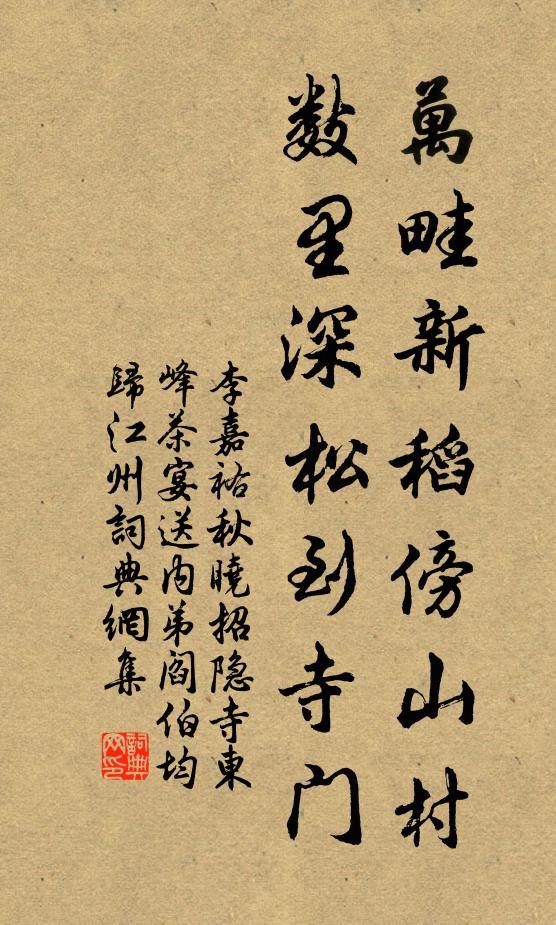 萬畦新稻傍山村
数里深松到寺门
李嘉祐秋曉招隐寺東
峰茶宴送内弟阎伯均
歸江州詞典網集
詞典网印